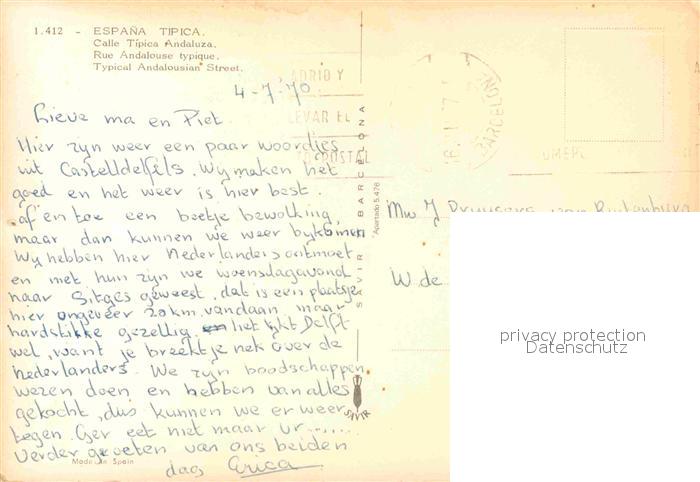 1.412 - ESPAÑA TIPICA.
Calle Típica Andaluza.
Rue Andalouse typique.
Typical Andalousian Street.
4-7-70
Lieve ma en Piet.
Hier zijn weer een paar woordjes
uit Castelldefels. Wij maken het
goed en het weer is hier best.
af en toe een beetje bewolking,
maar dan kunnen we weer bijkomen
Wij hebben hier Nederlanders ontmoet
en met hun zijn we woensdagavond
naar Sitges geweest, dat is een plaatsje
hier ongeveer 20 km. vandaan, maar
hardstikke gezellig. het lijkt Delft
wel, want je breekt je nek over de
nederlanders. We zijn boodschappen
wezen doen en hebben van alles
gekocht, dus kunnen we er weer
tegen. Ger eet niet maar vr......
Verder groeten van ons beiden
dag Erica
Made in Spain
SAVIR BARCELONA
Apartado 5.476
SAVIR
ADRID Y
LEVAR EL
POSTAL
BARCELON
Mw. J
W. de
privacy protection
Datenschutz